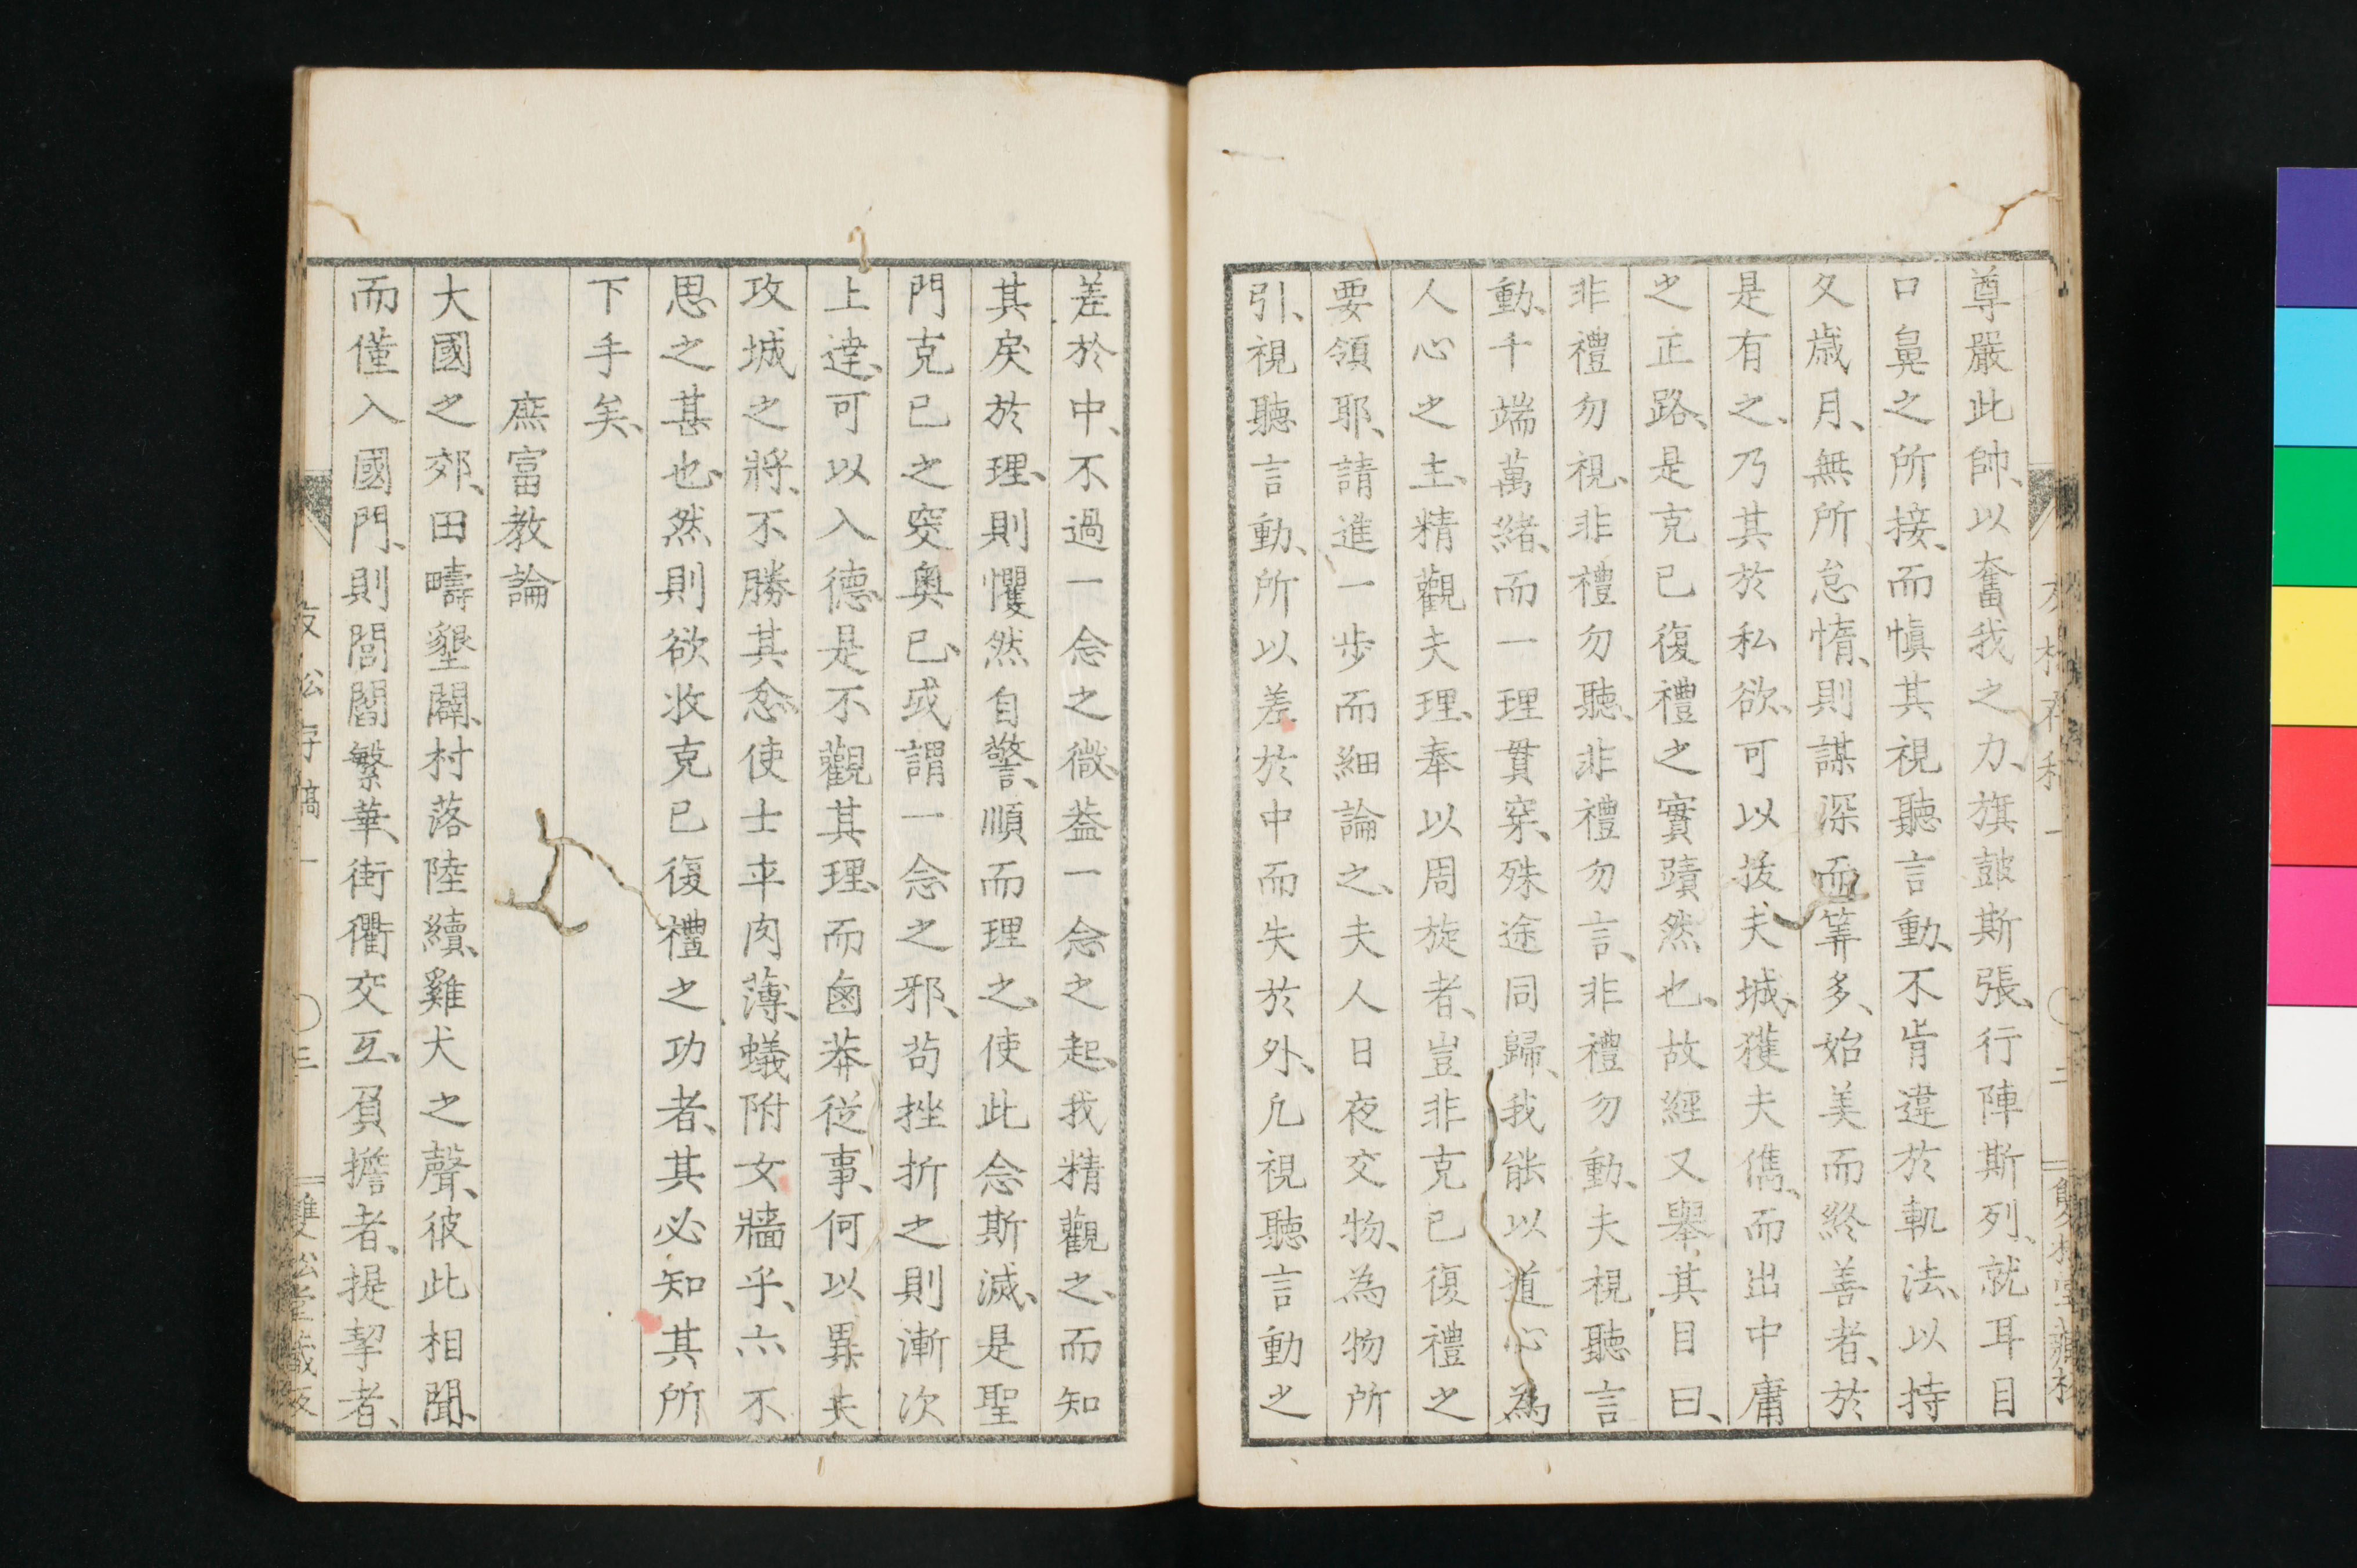 尊嚴此帥、以奮我之力、旗鼓斯張、行陣斯列、就耳目
口鼻之所接、而愼其視聽言動、不肯違於軌法、以持
久歳月、無所怠惰、則謀深而筭多、始美而終善者、於
是有之、乃其於私欲、可以拔夫城、獲夫儁、而出中庸
之正路、是克已復禮之實蹟然也、故經又舉其目曰、
非禮勿視、非禮勿聽、非禮勿言、非禮勿動、夫視聽言
動、千端萬緒、而一理貫穿、殊途同歸、我能以道心為
人心之主、精觀夫理、奉以周旋者、豈非克已復禮之
要領耶、請進一步而細論之、夫人日夜交物、為物所
引、視聽言動、所以差於中而失於外、凢視聽言動之
差於中、不過一念之微、葢一念之起、我精觀之、而知
其戾於理、則懼然自警、順而理之、使此念斯滅、是聖
門克已之窔奧已、或謂一念之邪、苟挫折之則漸次
上達、可以入德、是不觀其理、而鹵莽從事、何以異夫
攻城之將、不勝其忿、使士卒肉薄、蟻附女牆乎、亦不
思之甚也、然則欲收克已復禮之功者、其必知其所
下手矣、
庶富教論
大國之郊、田疇墾闢、村落陸續、雞犬之聲、彼此相聞、
而僅入國門、則閭閻繁華、街衢交互、負擔者、提挈者、
松存稿一
〇三
雙松堂藏版